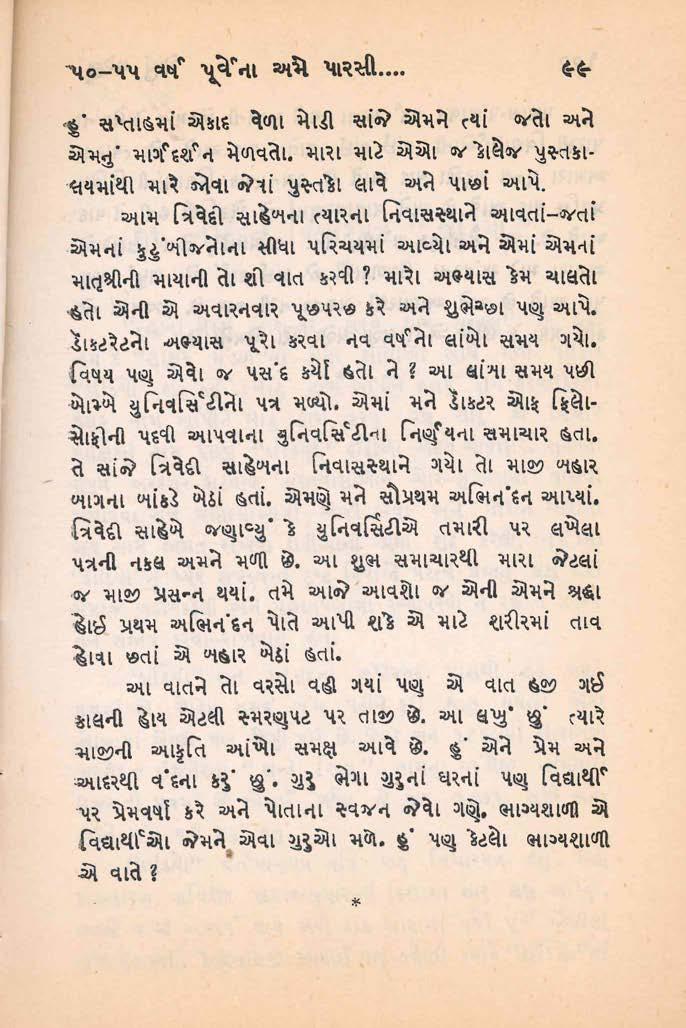 ૫૦-૫૫ વર્ષ પૂર્વેના અમે પારસી.... ૯૯
હું સપ્તાહમાં એકાદ વેળા મોડી સાંજે એમને ત્યાં જતો અને
એમનું માર્ગદર્શન મેળવતો. મારા માટે એઓ જ કોલેજ પુસ્તકા-
લયમાંથી મારે જોવા જેત્રાં પુસ્તકો લાવે અને પાછાં આપે.
આમ ત્રિવેદી સાહેબના ત્યારના નિવાસસ્થાને આવતાં-જતાં
એમનાં કુટુંબીજનોના સીધા પરિચયમાં આવ્યો અને એમાં એમનાં
માતૃશ્રીની માયાની તો શી વાત કરવી ? મારો અભ્યાસ કેમ ચાલતો
હતો એની એ અવારનવાર પૂછપરછ કરે અને શુભેચ્છા પણ આપે.
ડૉકટરેટનો અભ્યાસ પૂરો કરવા નવ વર્ષનો લાંબો સમય ગયો.
વિષય પણ એવો જ પસંદ કર્યો હતો ને ? આ લાંબા સમય પછી
બોમ્બે યુનિવર્સિટીનો પત્ર મળ્યો. એમાં મને ડૉકટર ઑફ ફિલો-
સોફીની પદવી આપવાના યુનિવર્સિટીના નિર્ણયના સમાચાર હતા.
તે સાંજે ત્રિવેદી સાહેબના નિવાસસ્થાને ગયો તો માજી બહાર
બાગના બાંકડે બેઠાં હતાં. એમણે મને સૌપ્રથમ અભિનંદન આપ્યાં.
ત્રિવેદી સાહેબે જણાવ્યું કે યુનિવર્સિટીએ તમારી પર લખેલા
પત્રની નકલ અમને મળી છે. આ શુભ સમાચારથી મારા જેટલાં
જ માજી પ્રસન્ન થયાં. તમે આજે આવશો જ એની એમને શ્રદ્ધા
હોઈ પ્રથમ અભિનંદન પોતે આપી શકે એ માટે શરીરમાં તાવ
હોવા છતાં એ બહાર બેઠાં હતાં.
આ વાતને તો વરસો વહી ગયાં પણ એ વાત હજી ગઈ
કાલની હોય એટલી સ્મરણપટ પર તાજી છે. આ લખું છું ત્યારે
માજીની આકૃતિ આંખો સમક્ષ આવે છે. હું એને પ્રેમ અને
આદરથી વંદના કરું છું. ગુરુ ભેગા ગુરુનાં ઘરનાં પણ વિદ્યાર્થી
પર પ્રેમવર્ષા કરે અને પોતાના સ્વજન જેવો ગણે. ભાગ્યશાળી એ
વિદ્યાર્થીઓ જેમને એવા ગુરુઓ મળે. હું પણ કેટલો ભાગ્યશાળી
એ વાતે ?
*